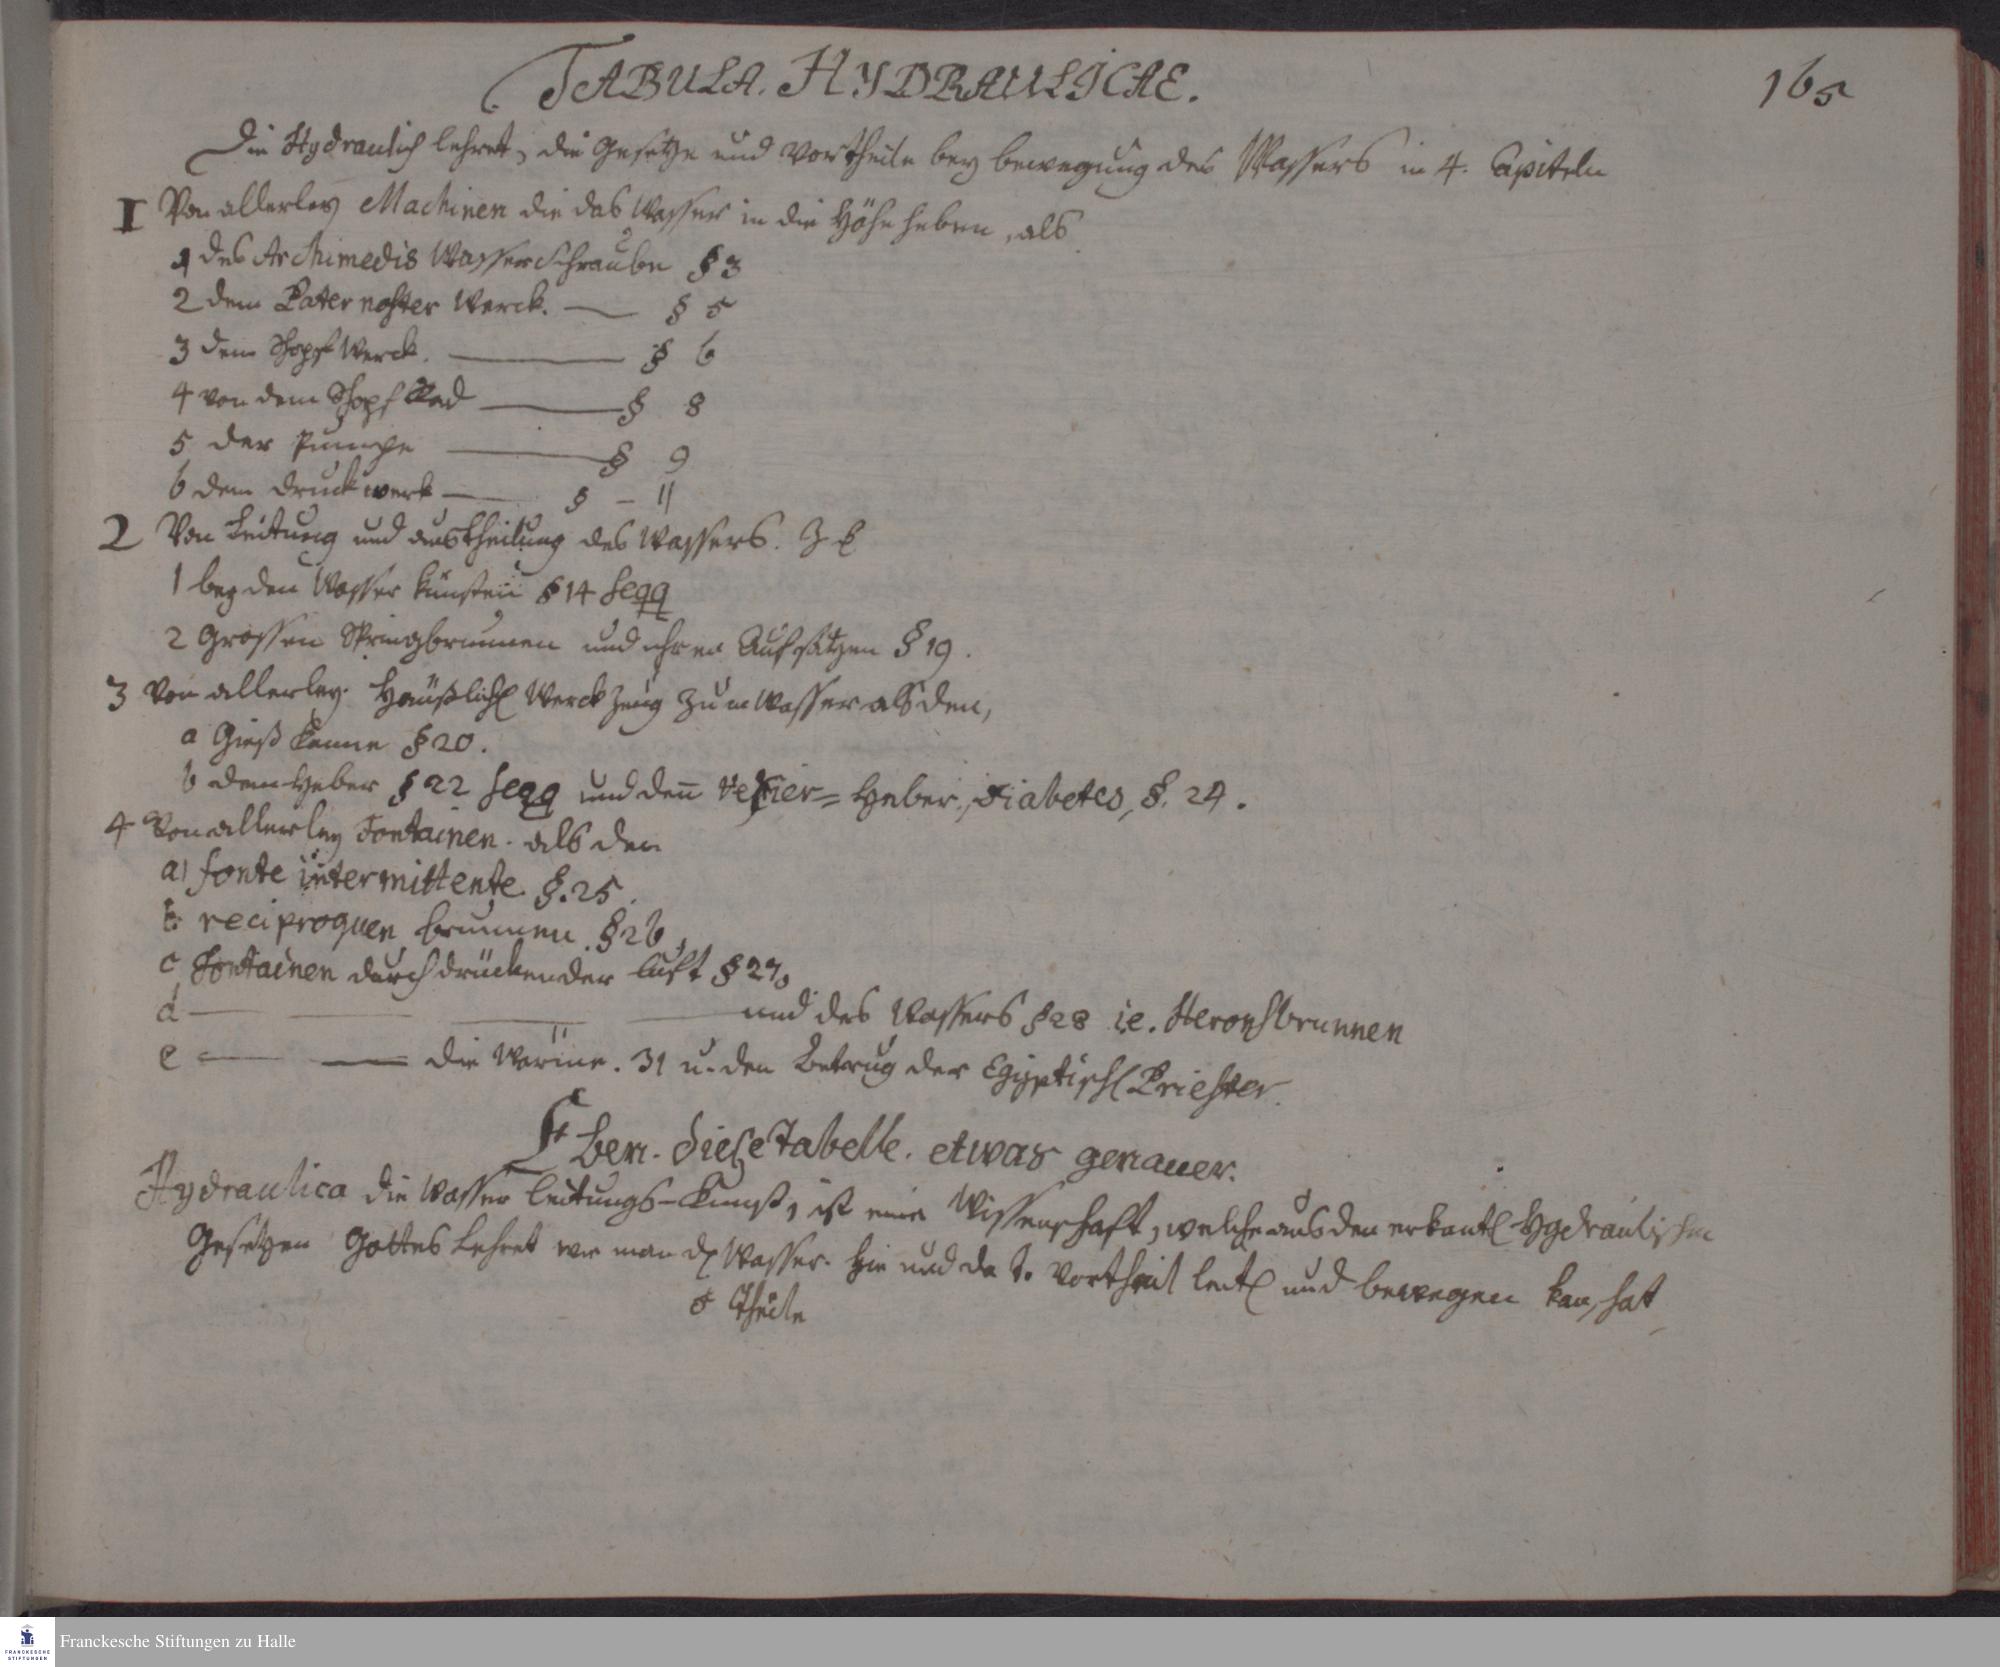 TABULA. HYDRAULICAE.
165
Die Hydraulich lehret, die Gesetze und Vortheile bey bewegung des Wassers in 4. Capiteln
I Von allerley Machinen die das Wasser in die Höhe heben, als
1 des Archimedis Wasserschraube § 3
2 dem Paternoster Werck. — § 5
3 dem Schopf Werck. — § 6
4 von dem Schopf Rad — § 8
5 der Pumpe — § 9
6 dem Druckwerk — § – 11
2 Von Leitung und austheilung des Wassers. Z E
1 bey den Wasser künsten § 14 seqq
2 Grossen Springbrunnen und ihren Aufsätzen § 19.
3 Von allerley Häußlich Werckzeug zum Wasser als den,
a Gieß Kanne § 20.
b dem Heber § 22 seqq und den Vexier= Heber, Diabetes, §. 24.
4 Von allerley Fontainen. als den
a) fonte intermittente §. 25.
b. reciproquen brunnen. § 26,
c, Fontainen durch drückender luft § 27.
d — — — — und des Wassers § 28 i.e. Heronsbrunnen
e — — die Wärme. 31 u. den Betrug der Egyptisch Priester.
Eben diese Tabelle. etwas genauer.
Hydraulica die Wasser leitungs-Kunst, ist eine Wissenschaft, welche aus den erkant Hydraulischen
Gesetzen Gottes Lehret wie man Wasser. hie und da Vortheil leit und bewegen kan, hat
Theile
Franckesche Stiftungen zu Halle
FRANCKESCHE
STIFTUNGEN